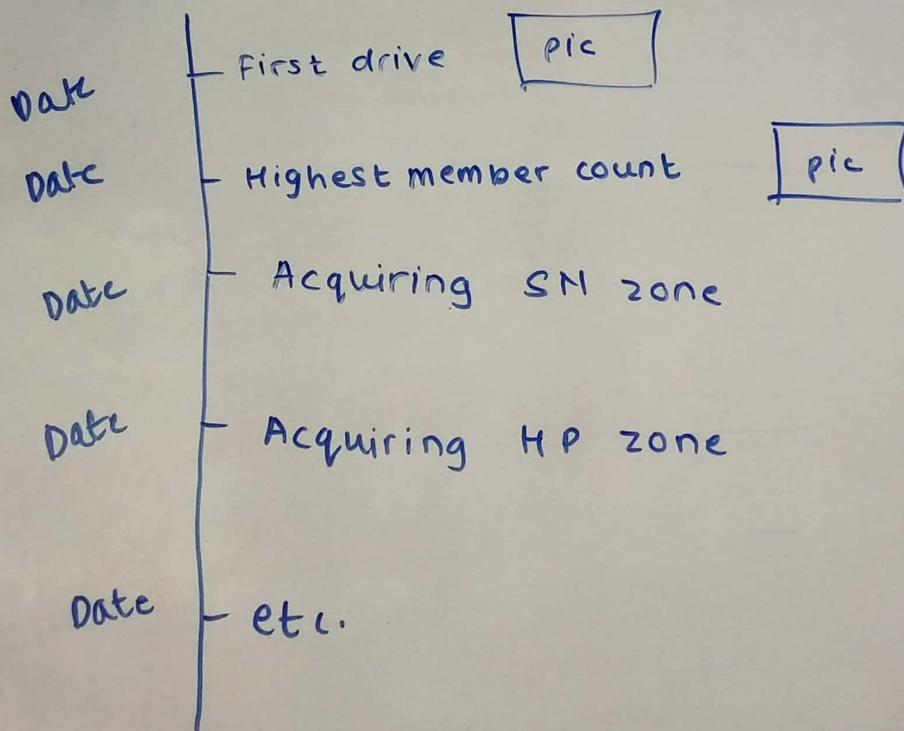 Date First drive pic
Date Highest member count pic
Date Acquiring SN zone
Date Acquiring HP zone
Date etc.